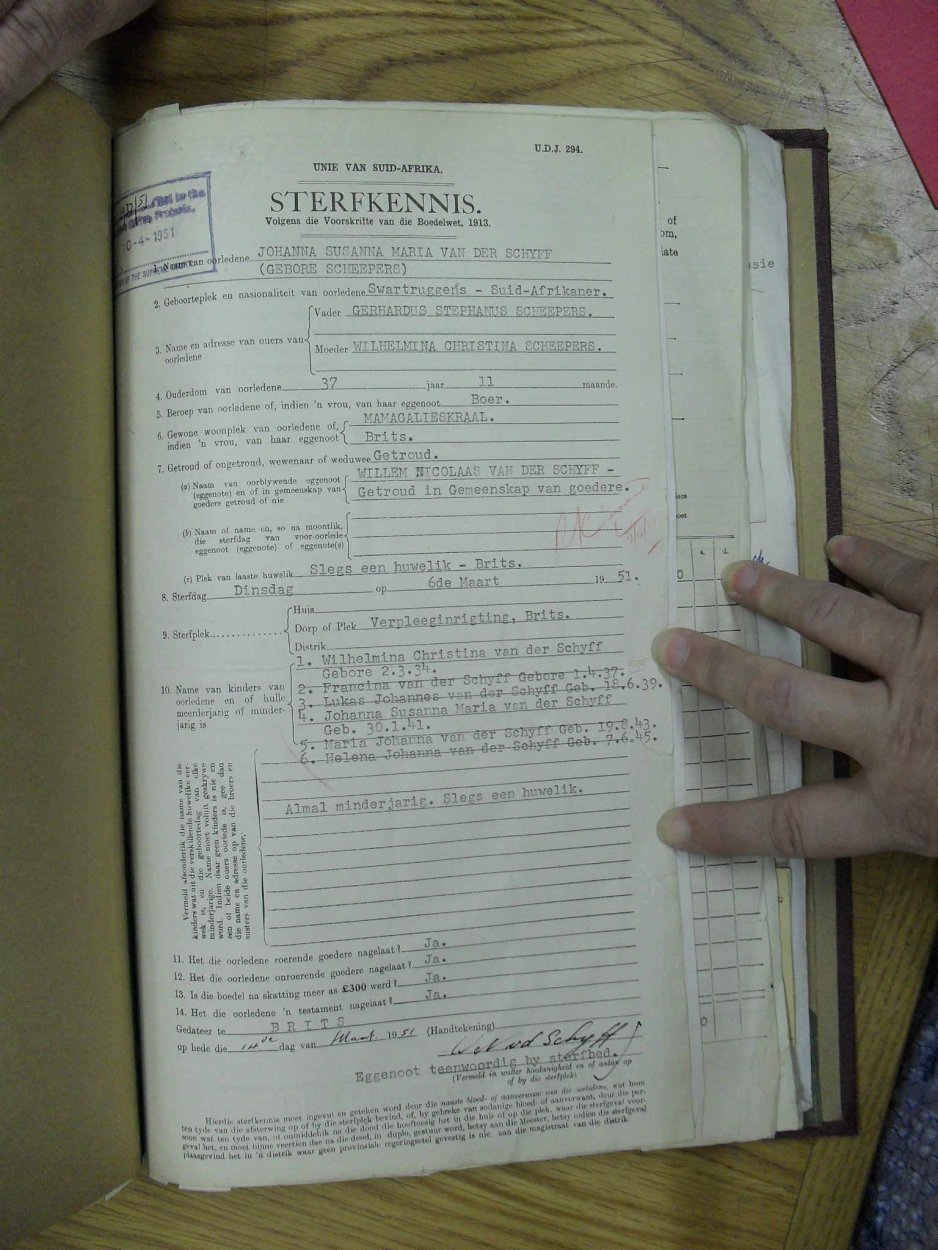 U.D.J. 294.
UNIE VAN SUID-AFRIKA.
STERFKENNIS.
Volgens die Voorskrifte van die Boedelwet, 1913.
10-4-1951
1. Naam van oorledene JOHANNA SUSANNA MARIA VAN DER SCHYFF
(GEBORE SCHEEPERS)
2. Geboorteplek en nasionaliteit van oorledene Swartruggens - Suid-Afrikaner.
3. Name en adresse van ouers van oorledene
Vader GERHARDUS STEPHANUS SCHEEPERS.
Moeder WILHELMINA CHRISTINA SCHEEPERS.
4. Ouderdom van oorledene 37 jaar 11 maande.
5. Beroep van oorledene of, indien 'n vrou, van haar eggenoot Boer.
6. Gewone woonplek van oorledene of, MAMAGALIESKRAAL.
indien 'n vrou, van haar eggenoot Brits.
7. Getroud of ongetroud, wewenaar of weduwee Getroud.
(a) Naam van oorblywende eggenoot WILLEM NICOLAAS VAN DER SCHYFF -
(eggenote) en of in gemeenskap van Getroud in Gemeenskap van goedere.
goedere getroud of nie
(b) Naam of name en, so na moontlik,
die sterfdag van voor-oorlede
eggenoot (eggenote) of eggenote(s)
(c) Plek van laaste huwelik Slegs een huwelik - Brits.
8. Sterfdag Dinsdag op 6de Maart 19 51.
9. Sterfplek
Huis
Dorp of Plek Verpleeginrigting, Brits.
Distrik
10. Name van kinders van
oorledene en of hulle
meerderjarig of minder-
jarig is
1. Wilhelmina Christina van der Schyff
Gebore 2.3.34.
2. Francina van der Schyff Gebore 1.4.37.
3. Lukas Johannes van der Schyff Geb. 18.6.39.
4. Johanna Susanna Maria van der Schyff
Geb. 30.1.41.
5. Maria Johanna van der Schyff Geb. 19.8.43.
6. Helena Johanna van der Schyff Geb. 7.6.45.
Vermeld afsonderlik die name van die
kinders wat uit die verskillende huwelike ver-
wek is, en die geboortedag van elke
minderjarige. Name moet voluit geskrywe
word. Indien daar geen kinders is nie en
een of beide ouers oorlede is, gee dan
die name en adresse op van die broers en
susters van die oorledene.
Almal minderjarig. Slegs een huwelik.
11. Het die oorledene roerende goedere nagelaat? Ja.
12. Het die oorledene onroerende goedere nagelaat? Ja.
13. Is die boedel na skatting meer as £300 werd? Ja.
14. Het die oorledene 'n testament nagelaat? Ja.
Gedateer te BRITS
op hede die 14de dag van Maart 1951 (Handtekening)
Eggenoot teenwoordig by sterfbed.
(Vermeld in watter hoedanigheid en of aldan op
of by die sterfplek)
Hierdie sterfkennis moet ingevul en geteken word deur die naaste bloed- of aanverwant van die oorledene, wat hom
ten tyde van die afsterwing op of by die sterfplek bevind, of, by gebreke van sodanige bloed- of aanverwant, deur die per-
soon wat ten tyde van, of onmiddellik na die dood die hooftoesig het in die huis of op die plek, waar die sterfgeval voor-
geval het, en moet binne veertien dae na die dood, in duplo, gestuur word, hetsy aan die Meester, hetsy indien die sterfgeval
plaasgevind het in 'n distrik waar geen provinsiale regeringsetel gevestig is nie, aan die magistraat van die distrik.